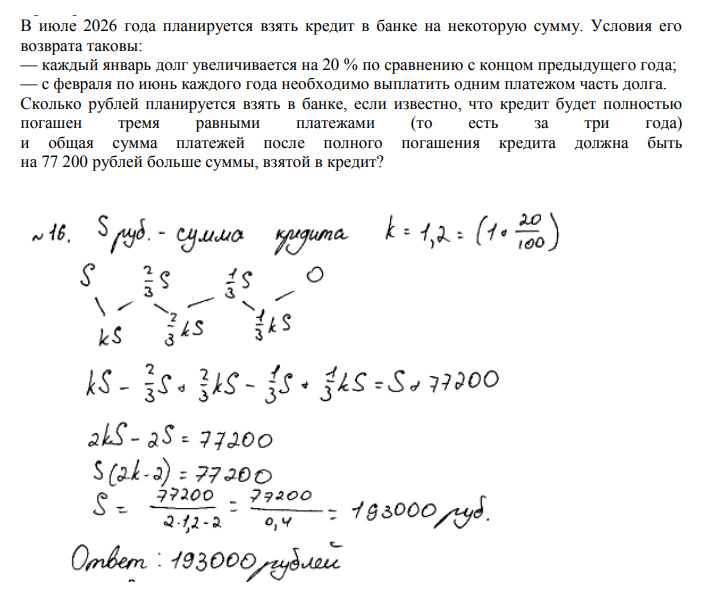 В июле 2026 года планируется взять кредит в банке на некоторую сумму. Условия его
возврата таковы:
— каждый январь долг увеличивается на 20 % по сравнению с концом предыдущего года;
— с февраля по июнь каждого года необходимо выплатить одним платежом часть долга.
Сколько рублей планируется взять в банке, если известно, что кредит будет полностью
погашен тремя равными платежами (то есть за три года)
и общая сумма платежей после полного погашения кредита должна быть
на 77 200 рублей больше суммы, взятой в кредит?
№16. S руб. - сумма кредита k = 1,2 = (1+20/100)
S 2/3S 1/3S 0
kS 2/3kS 1/3kS
kS - 2/3S + 2/3kS - 1/3S + 1/3kS = S + 77200
2kS - 2S = 77200
S(2k-2) = 77200
S = 77200/(2·1,2-2) = 77200/0,4 = 193000 руб.
Ответ: 193000 рублей